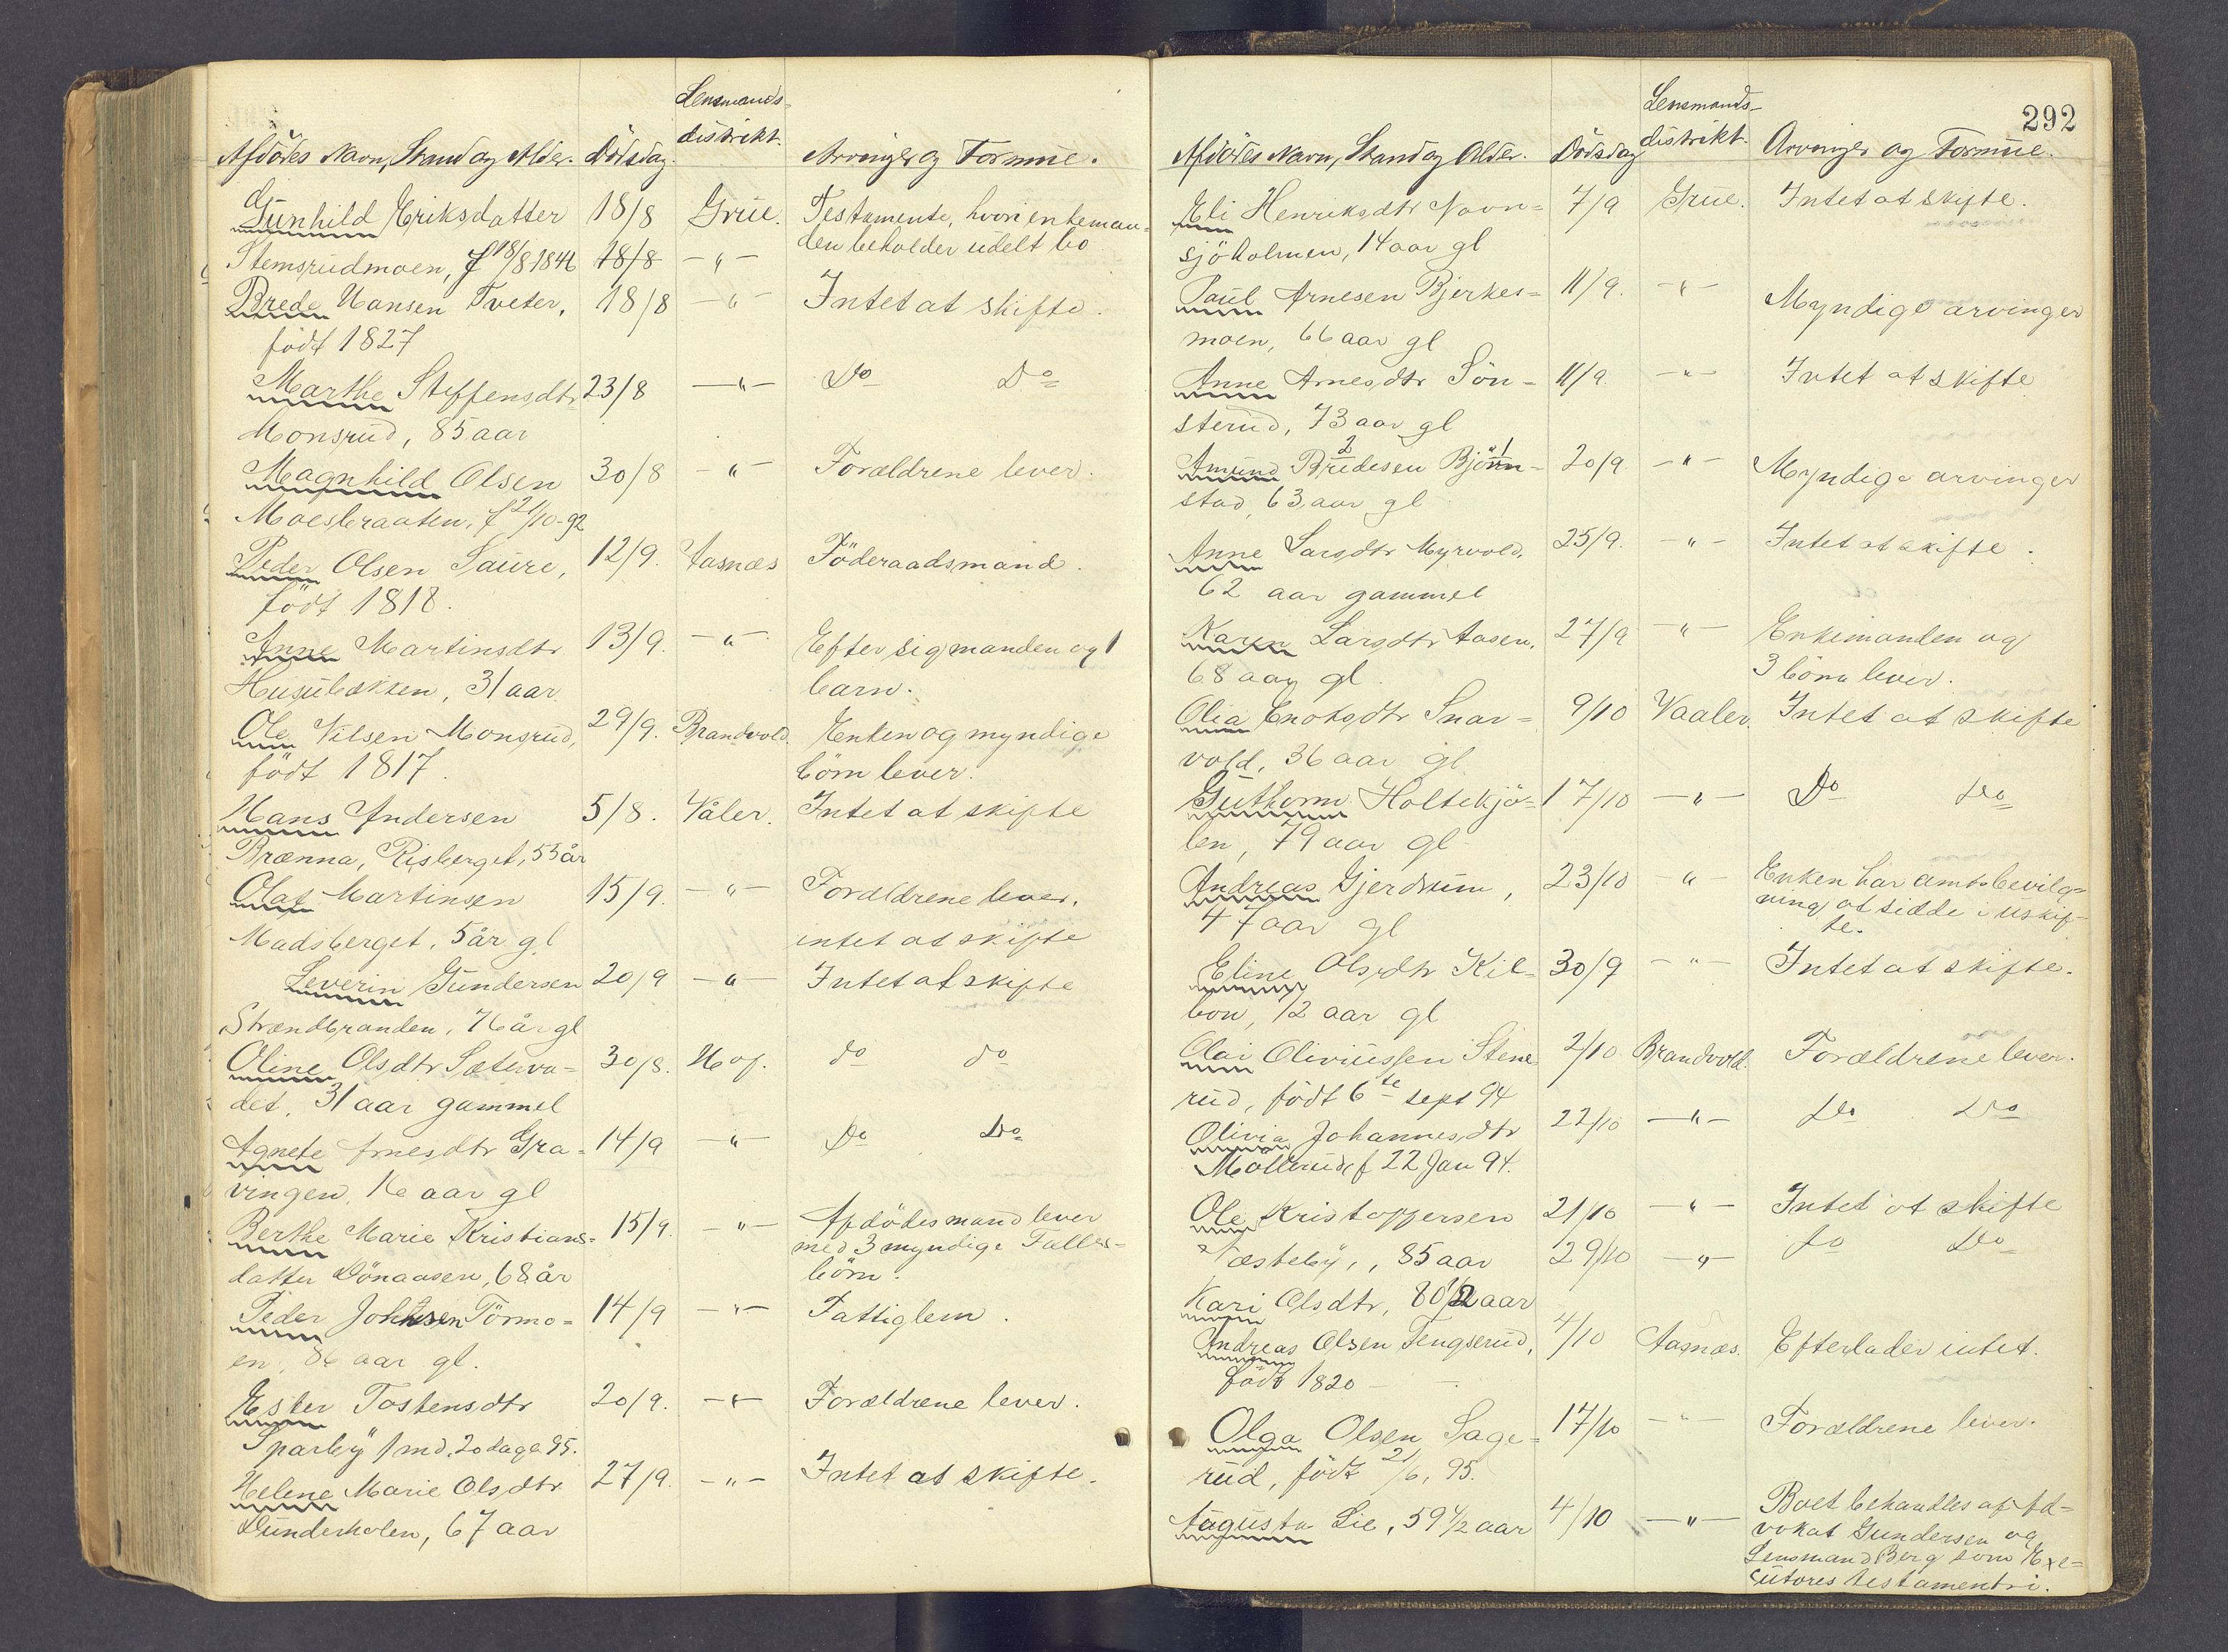 Lensmands-
Afdödes Navn, Stand og Alder. Dödsdag. distrikt. Arvinger og Formue.
Gunhild Eriksdatter 18/8 Grue. Testamente, hvori enkeman-
den beholder udelt bo
Stemsrudmoen, f 18/8 1846 18/8 - " -
Brede Hansen Tveter, 18/8 - " - Intet at skifte.
födt 1827
Marthe Steffensdtr 23/8 - " - Do Do
Monsrud, 85 aar
Magnhild Olsen 30/8 - " - Forældrene lever.
Moesbraaten, f 21/10-92
Peder Olsen Saure, 12/9. Aasnæs Föderaadsmand.
födt 1818.
Anne Martinsdtr 13/9. - " - Efter sig manden og 1
Husubækken, 31 aar barn.
Ole Nilsen Monsrud, 29/9. Brandvold. Enken og myndige
födt 1817. börn lever.
Hans Andersen 5/8. Våler. Intet at skifte
Brænna, Risberget, 55 år
Olaf Martinsen 15/9. - " - Forældrene lever.
Madsberget, 5 år gl intet at skifte
Severin Gundersen 20/9 - " - Intet at skifte
Strandbranden, 76 år gl
Oline Olsdtr Sæterva- 30/8. Hof. do do
det, 31 aar gammel
Agnete Arnesdtr Gra- 14/9 - " - Do Do
vingen, 16 aar gl
Berthe Marie Kristians- 15/9. - " - Afdödes mand lever
med 3 myndige Fælles-
datter Dönaasen, 68 år börn.
Peder Johnsen Törmo- 14/9 - " - Fattiglem.
en, 86 aar gl.
Ester Tostensdtr 20/9. - " - Forældrene lever.
Sparby 1 md. 20 dage 95.
Helene Marie Olsdtr 27/9. - " - Intet at skifte.
Dunderholen, 67 aar
292
Lensmands-
Afdödes Navn, Stand og Alder. Dödsdag distrikt. Arvinger og Formue.
Eli Henriksdtr Navn- 7/9 Grue. Intet at skifte.
sjöholmen, 14 aar gl
Paul Arnesen Bjerkes- 11/9. - " - Myndige arvinger
moen, 66 aar gl
Anne Arnesdtr Sön- 11/9. - " - Intet at skifte
sterud, 73 aar gl
Amund Bredesen Björn- 20/9. - " - Myndige arvinger
stad, 63 aar gl
Anne Larsdtr Myrvold, 25/9. - " - Intet at skifte.
62 aar gammel
Karen Larsdtr Aasen, 27/9 - " - Enkemanden og
68 aar gl. 3 börn lever.
Olia Enoksdtr Snar- 9/10 Vaaler. Intet at skifte
vold, 36 aar gl.
Guthorm Holtekjö- 17/10 - " - Do Do
len, 79 aar gl
Andreas Gjerdrum, 23/10 - " - Enken har amtsbevilg-
ning at sidde i uskif-
47 aar gl te.
Eline Olsdtr Kil- 30/9 - " - Intet at skifte.
bon, 12 aar gl
Olai Oliviussen Stene 2/10 Brandvold. Forældrene lever.
rud, födt 6te sept 94
Olivia Johannesdtr 22/10 - " - Do Do
Mollerud f 22 Jan 94.
Ole Kristoffersen 21/10 - " - Intet at skifte
Væsteby, 85 aar 29/10 - " - do Do
Kari Olsdtr, 80 1/2 aar
Andreas Olsen Tengserud, 4/10 Aasnæs. Efterlader intet.
födt 1820
Olga Olsen Sage- 17/10 - " - Forældrene lever.
rud, födt 21/6, 95.
Augusta Lie, 59 1/2 aar 4/10 - " - Boet behandles af Ad-
vokat Gundersen og
Lensmand Berg som Exe-
cutores testamentri.